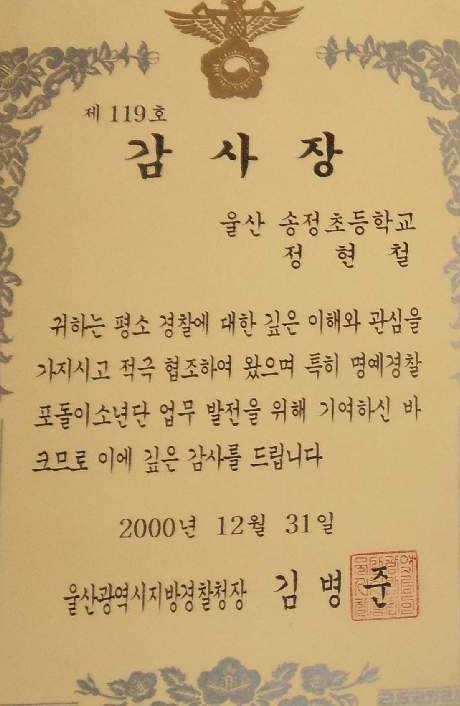 제 119호
감 사 장
울산 송정초등학교
정 현 철
귀하는 평소 경찰에 대한 깊은 이해와 관심을
가지시고 적극 협조하여 왔으며 특히 명예경찰
포돌이소년단 업무 발전을 위해 기여하신 바
크므로 이에 깊은 감사를 드립니다
2000년 12월 31일
울산광역시지방경찰청장 김 병 준